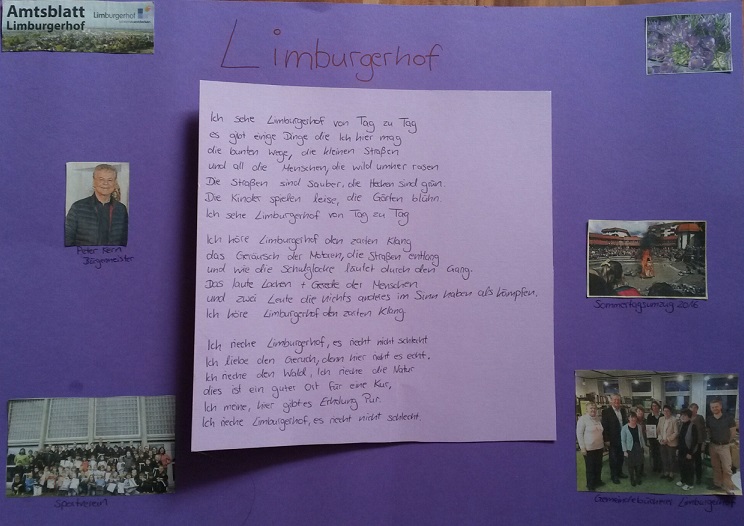 Amtsblatt
Limburgerhof
Limburgerhof
Limburgerhof
Ich sehe Limburgerhof von Tag zu Tag
es gibt einige Dinge die Ich hier mag
die bunten Wege, die kleinen Straßen
und all die Menschen, die wild umher rasen
Die Straßen sind sauber, die Hecken sind grün.
Die Kinder spielen leise, die Gärten blühn.
Ich sehe Limburgerhof von Tag zu Tag
Ich höre Limburgerhof den zarten Klang
das Geräusch der Motoren, die Straßen entlang
und wie die Schulglocke läutet durch den Gang.
Das laute Lachen + Gerede der Menschen
und zwei Leute die nichts anderes im Sinn haben als kämpfen.
Ich höre Limburgerhof den zarten Klang
Ich rieche Limburgerhof, es riecht nicht schlecht
Ich liebe den Geruch, denn hier riecht es echt.
Ich rieche den Wald, Ich rieche die Natur
dies ist ein guter Ort für eine Kur,
Ich meine, hier gibt es Erholung Pur.
Ich rieche Limburgerhof, es riecht nicht schlecht.
Peter Kern
Bürgermeister
Sommertagsumzug 2016
Sportverein
Gemeindebücherei Limburgerhof